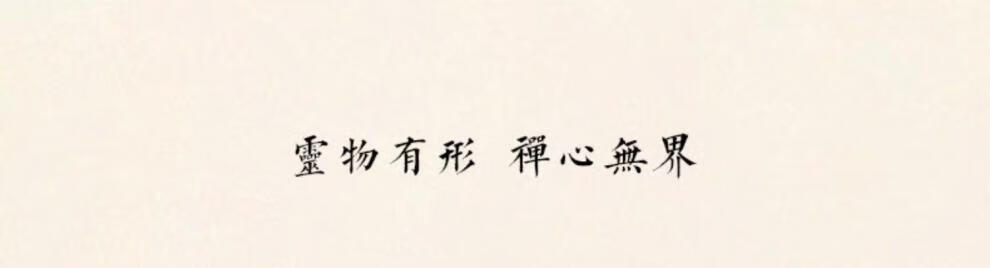 靈物有形 禪心無界